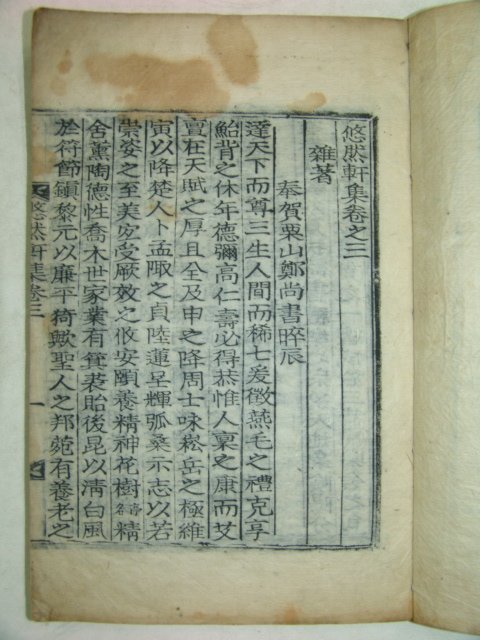 悠然軒集卷之三
雜著
奉賀栗山鄭尚書晬辰
達天下而尊三生人間而稀七爰徵燕毛之禮克享
鮐背之休年德彌高仁壽必得恭惟人稟之康而艾
亶在天賦之厚且全及申之降周士咏崧岳之極維
寅以降楚人卜孟陬之貞陸蓮呈輝弧桑示志以若
崇姿之至美安受厥效之攸安頤養精神花樹精
舍薰陶德性喬木世家業有箕裘貽後昆以淸白風
於符節鎭黎元以廉平猗歟聖人之邦菀有養老之
悠然軒集卷三
一